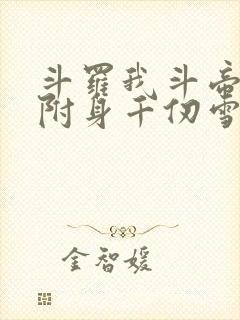 斗羅我斗帝
附身千仞雪
金智媛